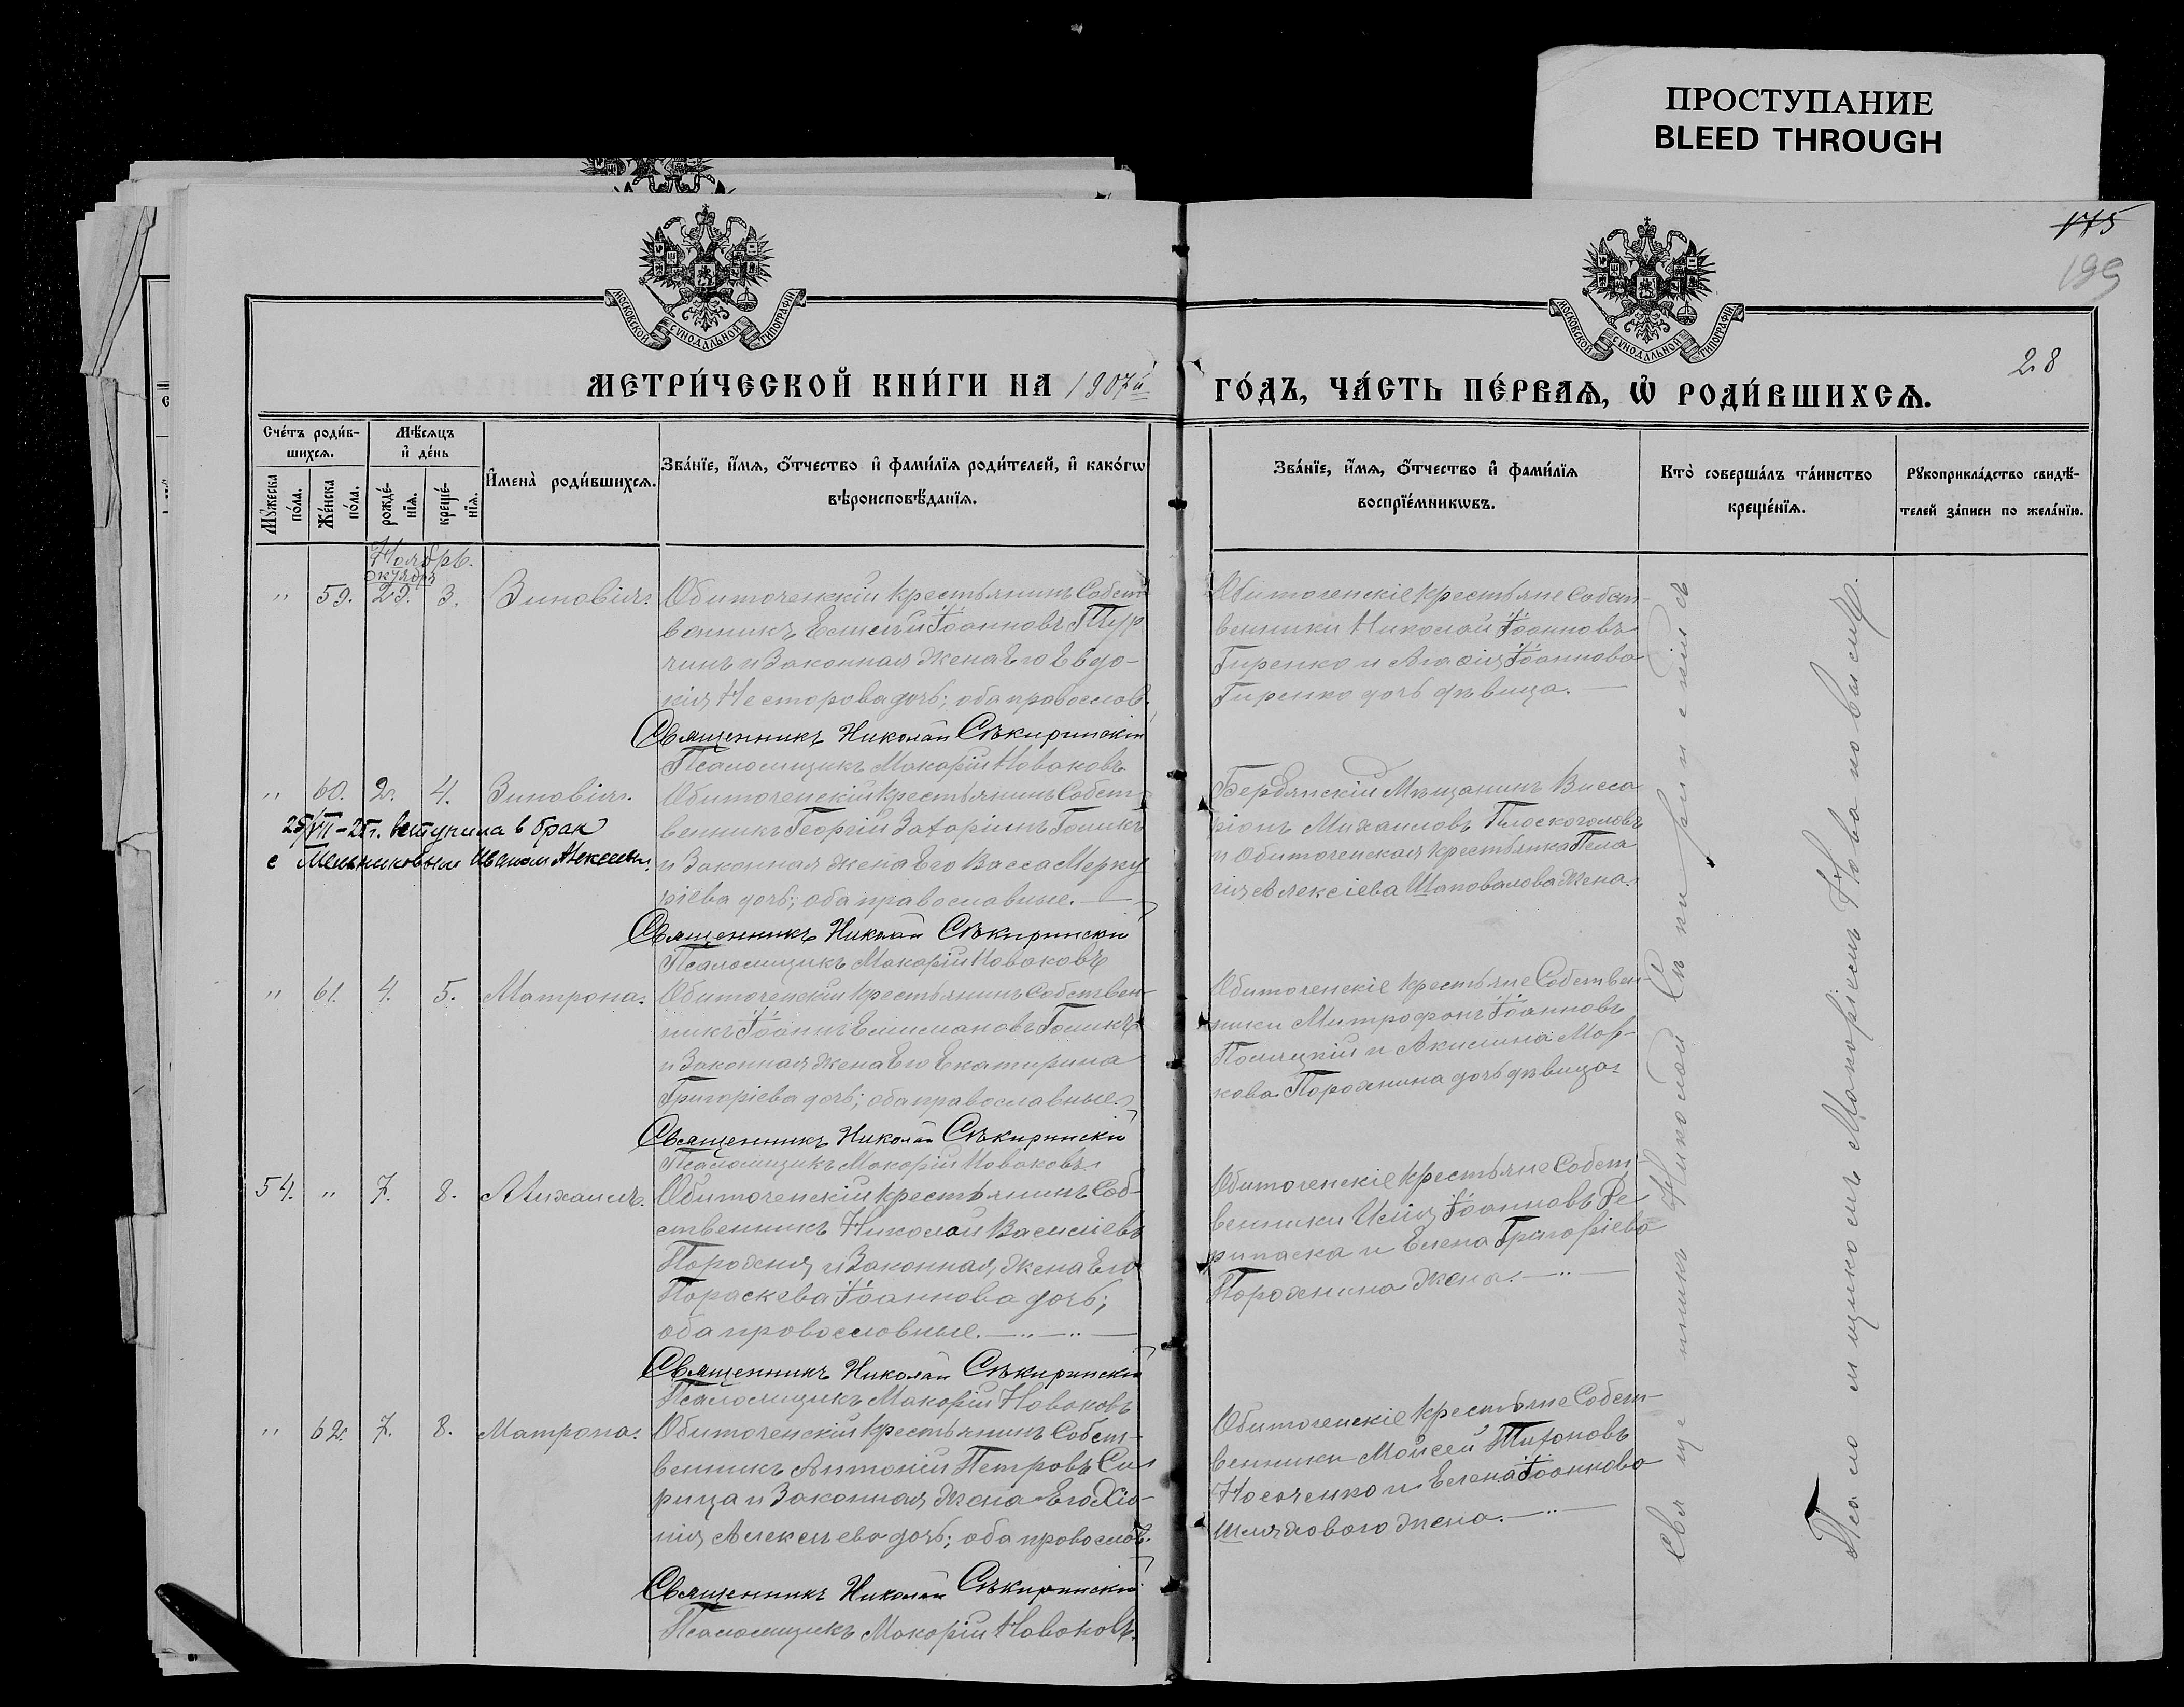 ПРОСТУПАНИЕ
BLEED THROUGH
175
199
28
МОСКОВСКОЙ СѴНОДАЛЬНОЙ ТИПОГРАФІИ
МОСКОВСКОЙ СѴНОДАЛЬНОЙ ТИПОГРАФІИ
МЕТРИ́ЧЕСКОЙ КНИ́ГИ НА 1907й
ГО́ДЪ, ЧА́СТЬ ПЕ́РВАѦ, Ѡ҆ РОДИ́ВШИХСѦ.
Сче́тъ роди́в-
шихсѧ.
Мѣ́сѧцъ
и҆ де́нь
Мꙋ́жеска по́ла.
Же́нска по́ла.
рожде́-нїѧ.
креще́-нїѧ.
И҆мена̀ роди́вшихсѧ.
Зва́нїе, и҆́мѧ, ѻ҆́тчество и҆ фами́лїѧ роди́телей, и҆ како́гѡ
вѣроисповѣ́данїѧ.
Зва́нїе, и҆́мѧ, ѻ҆́тчество и҆ фами́лїѧ
воспрїе́мникѡвъ.
Кто̀ соверша́лъ та́инство
креще́нїѧ.
Рꙋкоприкла́дство свидѣ́-
телей за́писи по жела́нїю.
Ноябрь.
октября
" 59. 29. 3. Зиновія. Обиточенскій крестьянинъ Собст
венникъ Елисей Іоанновъ Тур
чинъ и Законная жена Его Евдо-
кія Несторова дочь; оба православ.
Священникъ Николай Сѣкиринскій
Псаломщикъ Макарій Новаковъ
Обиточенскіе крестьяне Собст-
венники Николай Іоанновъ
Гиренко и Агафія Іоаннова
Гиренко дочь дѣвица.
" 60. 2. 4. Зиновія. Обиточенскій крестьянинъ Собст-
венникъ Георгій Захаріинъ Голикъ
и Законная жена Его Васса Мерку
ріева дочь; оба православные.
25/VII-25г. вступила в брак
с Мельниковым Иваном Алексеев.
Священникъ Николай Сѣкиринскій
Псаломщикъ Макарій Новаковъ
Бердянскій Мѣщанинъ Висса
ріонъ Михаиловъ Плоскоголовъ
и Обиточенская крестьянка Пела
гія Алексіева Шаповалова жена.
" 61. 4. 5. Матрона. Обиточенскій крестьянинъ Собствен-
никъ Іоаннъ Голикъ
и Законная жена Его Екатерина
Григоріева дочь; оба православные.
Священникъ Николай Сѣкиринскій
Псаломщикъ Макарій Новаковъ
Обиточенскіе крестьяне Собствен-
ники Митрофанъ Іоанновъ
и Акилина Мар-
кова Порожнина дочь дѣвица.
54. " 7. 8. Михаилъ. Обиточенскій крестьянинъ Соб-
ственникъ Николай Василіевъ
Порожня и Законная жена Его
Параскева Іоаннова дочь;
оба православные.
Священникъ Николай Сѣкиринскій
Псаломщикъ Макарій Новаковъ
Обиточенскіе крестьяне Собст-
венники Илія Іоанновъ Ре-
рипаска и Елена Григоріева
Порожнина жена.
" 62. 7. 8. Матрона. Обиточенскій крестьянинъ Собст-
венникъ Антоній Петровъ Си
рица и Законная жена Его Хіо-
нія Алексѣева дочь; оба православ.
Священникъ Николай Сѣкиринскій
Псаломщикъ Макарій Новаковъ.
Обиточенскіе крестьяне Собст-
венники Мойсей Тихоновъ
Носаченко и Елена Іоаннова
жена.
Священникъ Николай Сѣкиринскій съ
Псаломщикомъ Макаріемъ Новаковымъ.